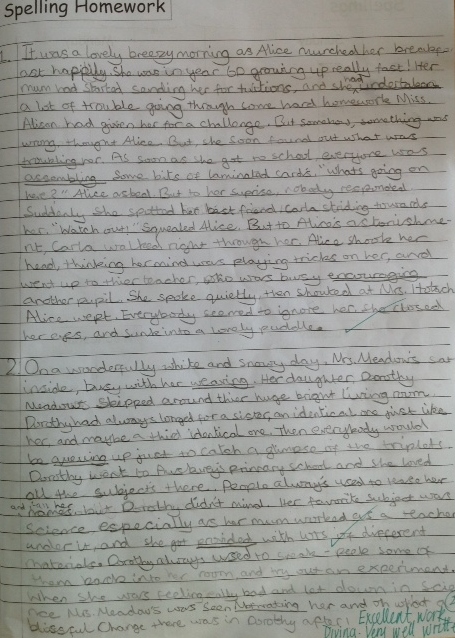 Spelling Homework
1. It was a lovely breezy morning as Alice munched her breakf-
ast happily. She was in year 6 growing up really fast! Her
mum had started sending her for tuitions, and she had undertaken
a lot of trouble going through some hard homework Miss.
Alison had given her for a challenge. But somehow, something was
wrong, thought Alice. But, she soon found out what was
troubling her. As soon as she got to school everyone was
assembling some bits of laminated cards. "Whats going on
here?" Alice asked. But to her suprise, nobody responded.
Suddenly she spotted her best friend, Carla striding towards
her. "Watch out!" Squealed Alice. But to Alice's astonishme-
nt, Carla walked right through her. Alice shook her
head, thinking her mind was playing tricks on her, and
went up to thier teacher, who was busy encouraging
another pupil. She spoke quietly, then shouted at Mrs.
Alice wept. Everybody seemed to ignore her. She closed
her eyes, and sunk into a lonely puddle.
2. On a wonderfully white and snowy day, Mrs. Meadows sat
inside, busy with her weaving. Her daughter, Dorothy
Meadows skipped around thier huge bright living room.
Dorothy had always longed for a sister, an identical one just like
her, and maybe a third identical one. Then everybody would
be queuing up just to catch a glimpse of the triplets.
Dorothy went to primary school and she loved
all the subjects there. People always used to tease her
and call her names, but Dorothy didn't mind. Her favorite subject was
Science especially as her mum worked as a teacher
under it, and she got provided with lots of different
materials. Dorothy always used to sneak some of
them back into her room and try out an experiment.
When she was feeling really bad and let down in Scie-
nce, Mrs. Meadows was seen motivating her and oh what a
blissful Change there was in Dorothy after!
Excellent work
Very well written